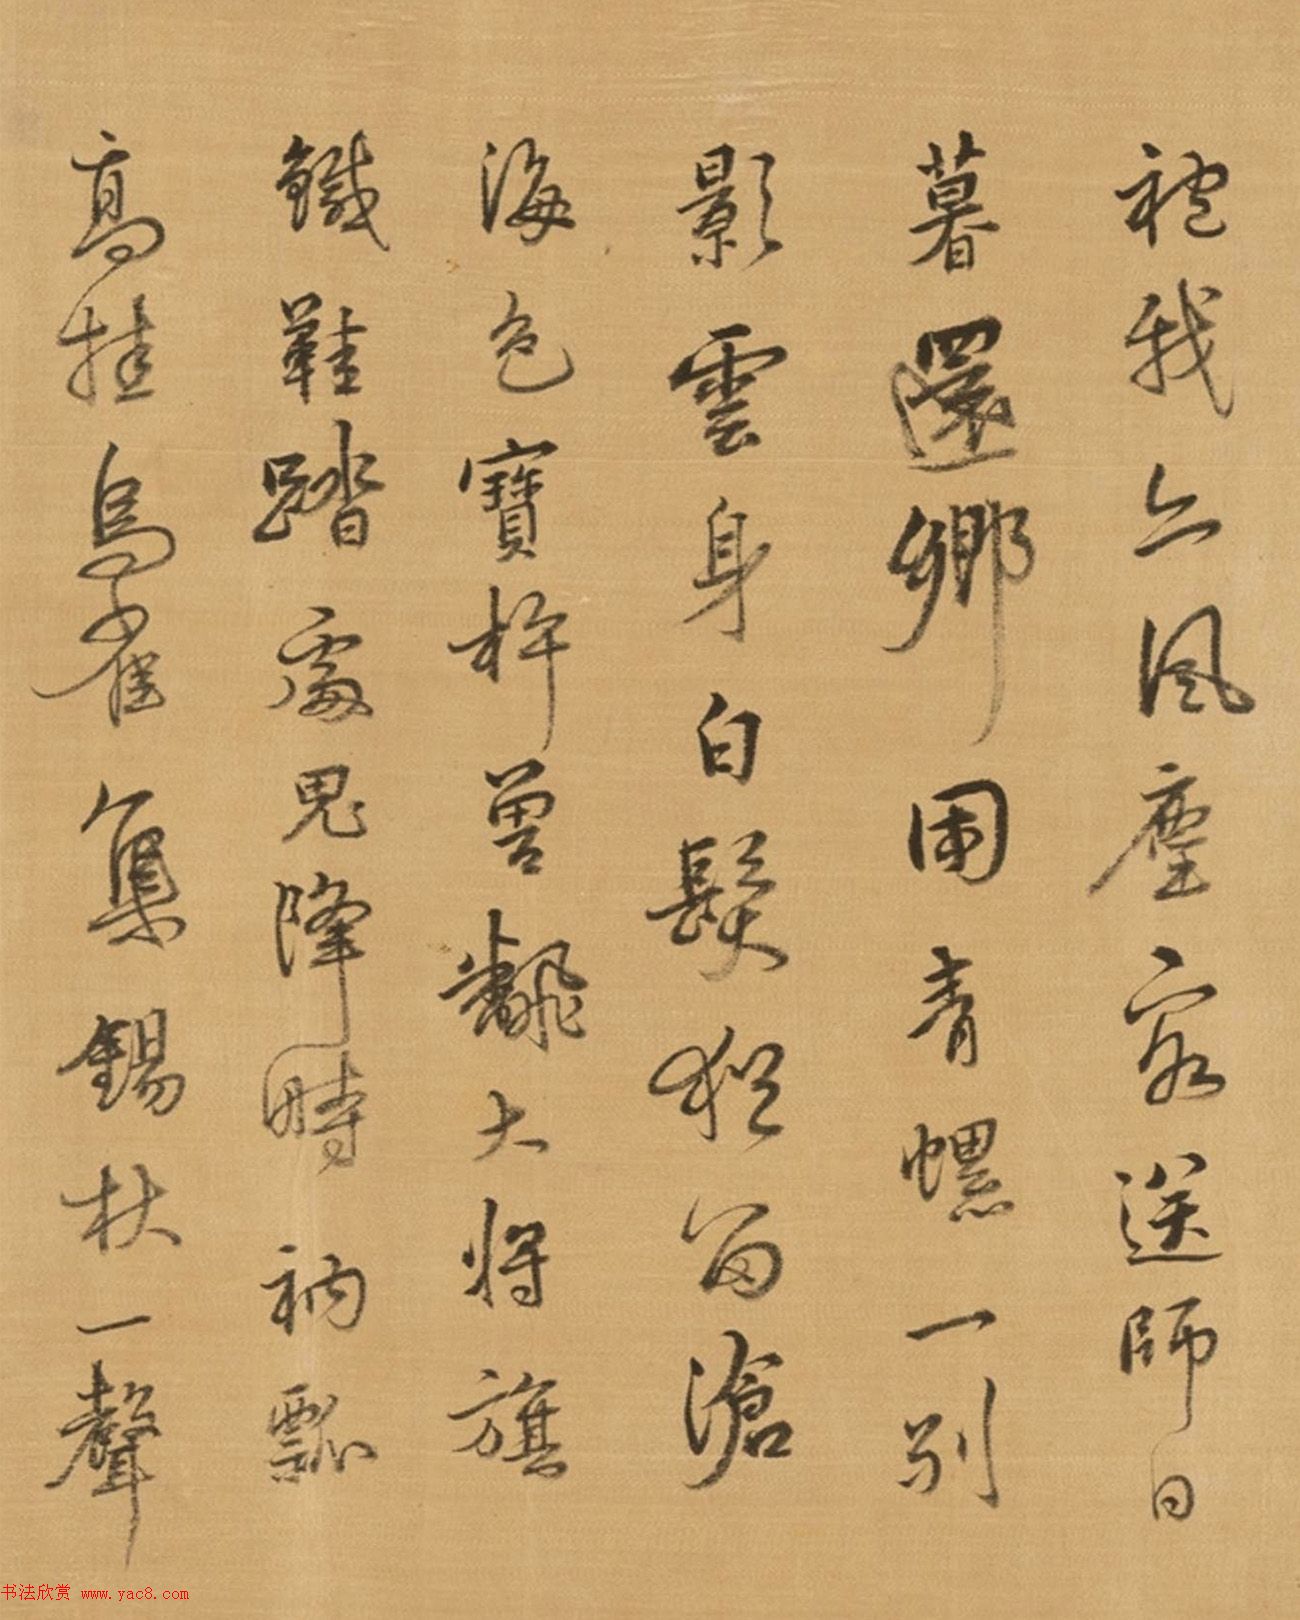 袍我亦風塵客送師日
暮還鄉國青螺一別
影雲身白髮猶留滄
海色寶杵曾飜大將旗
鐵鞋踏處鬼降時衲瓢
高挂烏雀集錫杖一聲
书法欣赏 www.yac8.com